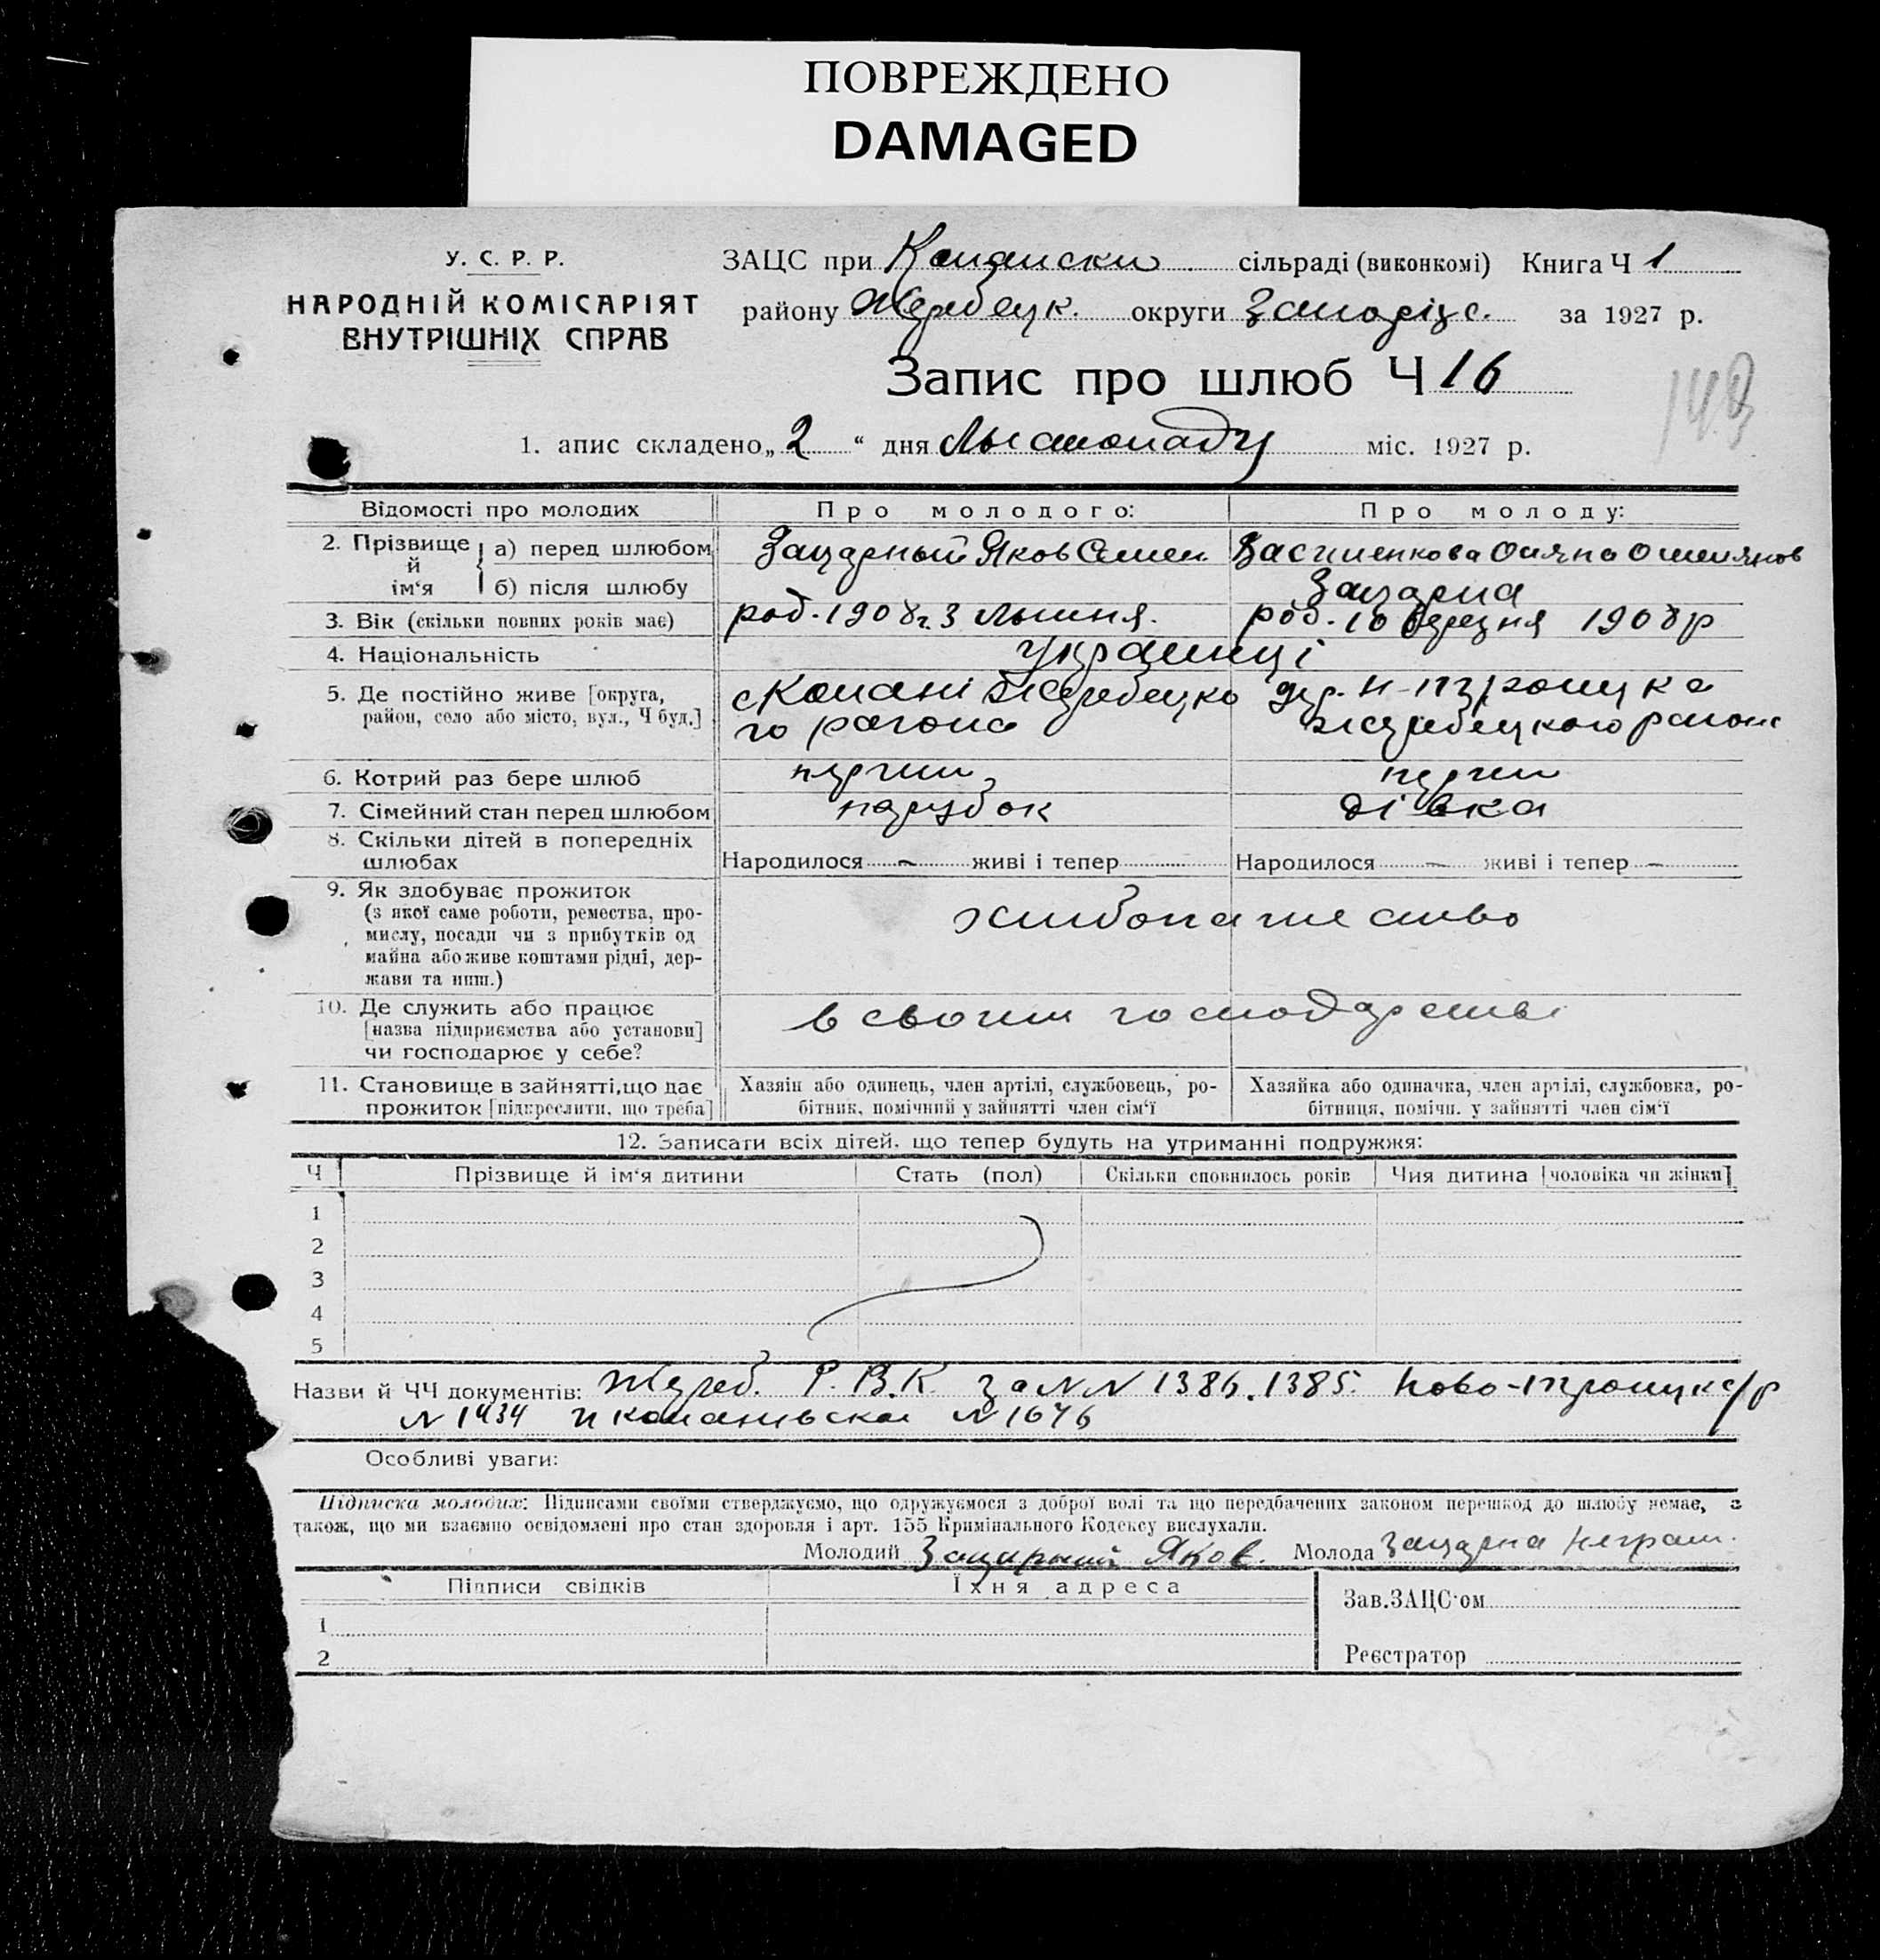 ПОВРЕЖДЕНО
DAMAGED
У. С. Р. Р.
НАРОДНІЙ КОМІСАРІЯТ
ВНУТРІШНІХ СПРАВ
ЗАЦС при сільраді (виконкомі) Книга Ч 1
району Жеребецк. округи Запоріз. за 1927 р.
Запис про шлюб Ч 16
143
1. апис складено „2“ дня Лыстопаду міс. 1927 р.
Відомості про молодих Про молодого: Про молоду:
2. Прізвище й ім'я а) перед шлюбом Зацарный Яков Семен Василенкова
б) після шлюбу Зацарна
3. Вік (скільки повних років має) род. 1908 г. 3 Лыпня. род. 10 березня 1908 р
4. Національність Українці
5. Де постійно живе [округа, район, село або місто, вул., Ч буд.] с Копані Жеребецко
го района Жеребецкого района
6. Котрий раз бере шлюб перший перший
7. Сімейний стан перед шлюбом парубок дівка
8. Скільки дітей в попередніх шлюбах Народилося – живі і тепер Народилося – живі і тепер –
9. Як здобуває прожиток хлибопашество
(з якої саме роботи, ремества, про-
мислу, посади чи з прибутків од
майна або живе коштами рідні, дер-
жави та инш.)
10. Де служить або працює в своим господарстві
[назва підприємства або установи]
чи господарює у себе?
11. Становище в зайнятті, що дає прожиток [підкреслити, що треба]
Хазяін або одинець, член артілі, службовець, ро-
бітник, помічний у зайнятті член сім'ї
Хазяйка або одиначка, член артілі, службовка, ро-
бітниця, помічн. у зайнятті член сім'ї
12. Записати всіх дітей, що тепер будуть на утриманні подружжя:
Ч Прізвище й ім'я дитини Стать (пол) Скільки сповнилось років Чия дитина [чоловіка чи жінки]
1
2
3
4
5
Назви й ЧЧ документів: Жереб. Р. В. К. за N N 1386. 1385. Ново-Троицк с/р
N 1434 и N 1676
Особливі уваги:
Підписка молодих: Підписами своїми стверджуємо, що одружуємося з доброї волі та що передбачених законом перешкод до шлюбу немає, а
також, що ми взаємно освідомлені про стан здоровля і арт. 155 Кримінального Кодексу вислухали.
Молодий Зацарный Яков. Молода Зацарна неграм.
Підписи свідків Їхня адреса
1
2
Зав. ЗАЦС'ом
Реєстратор